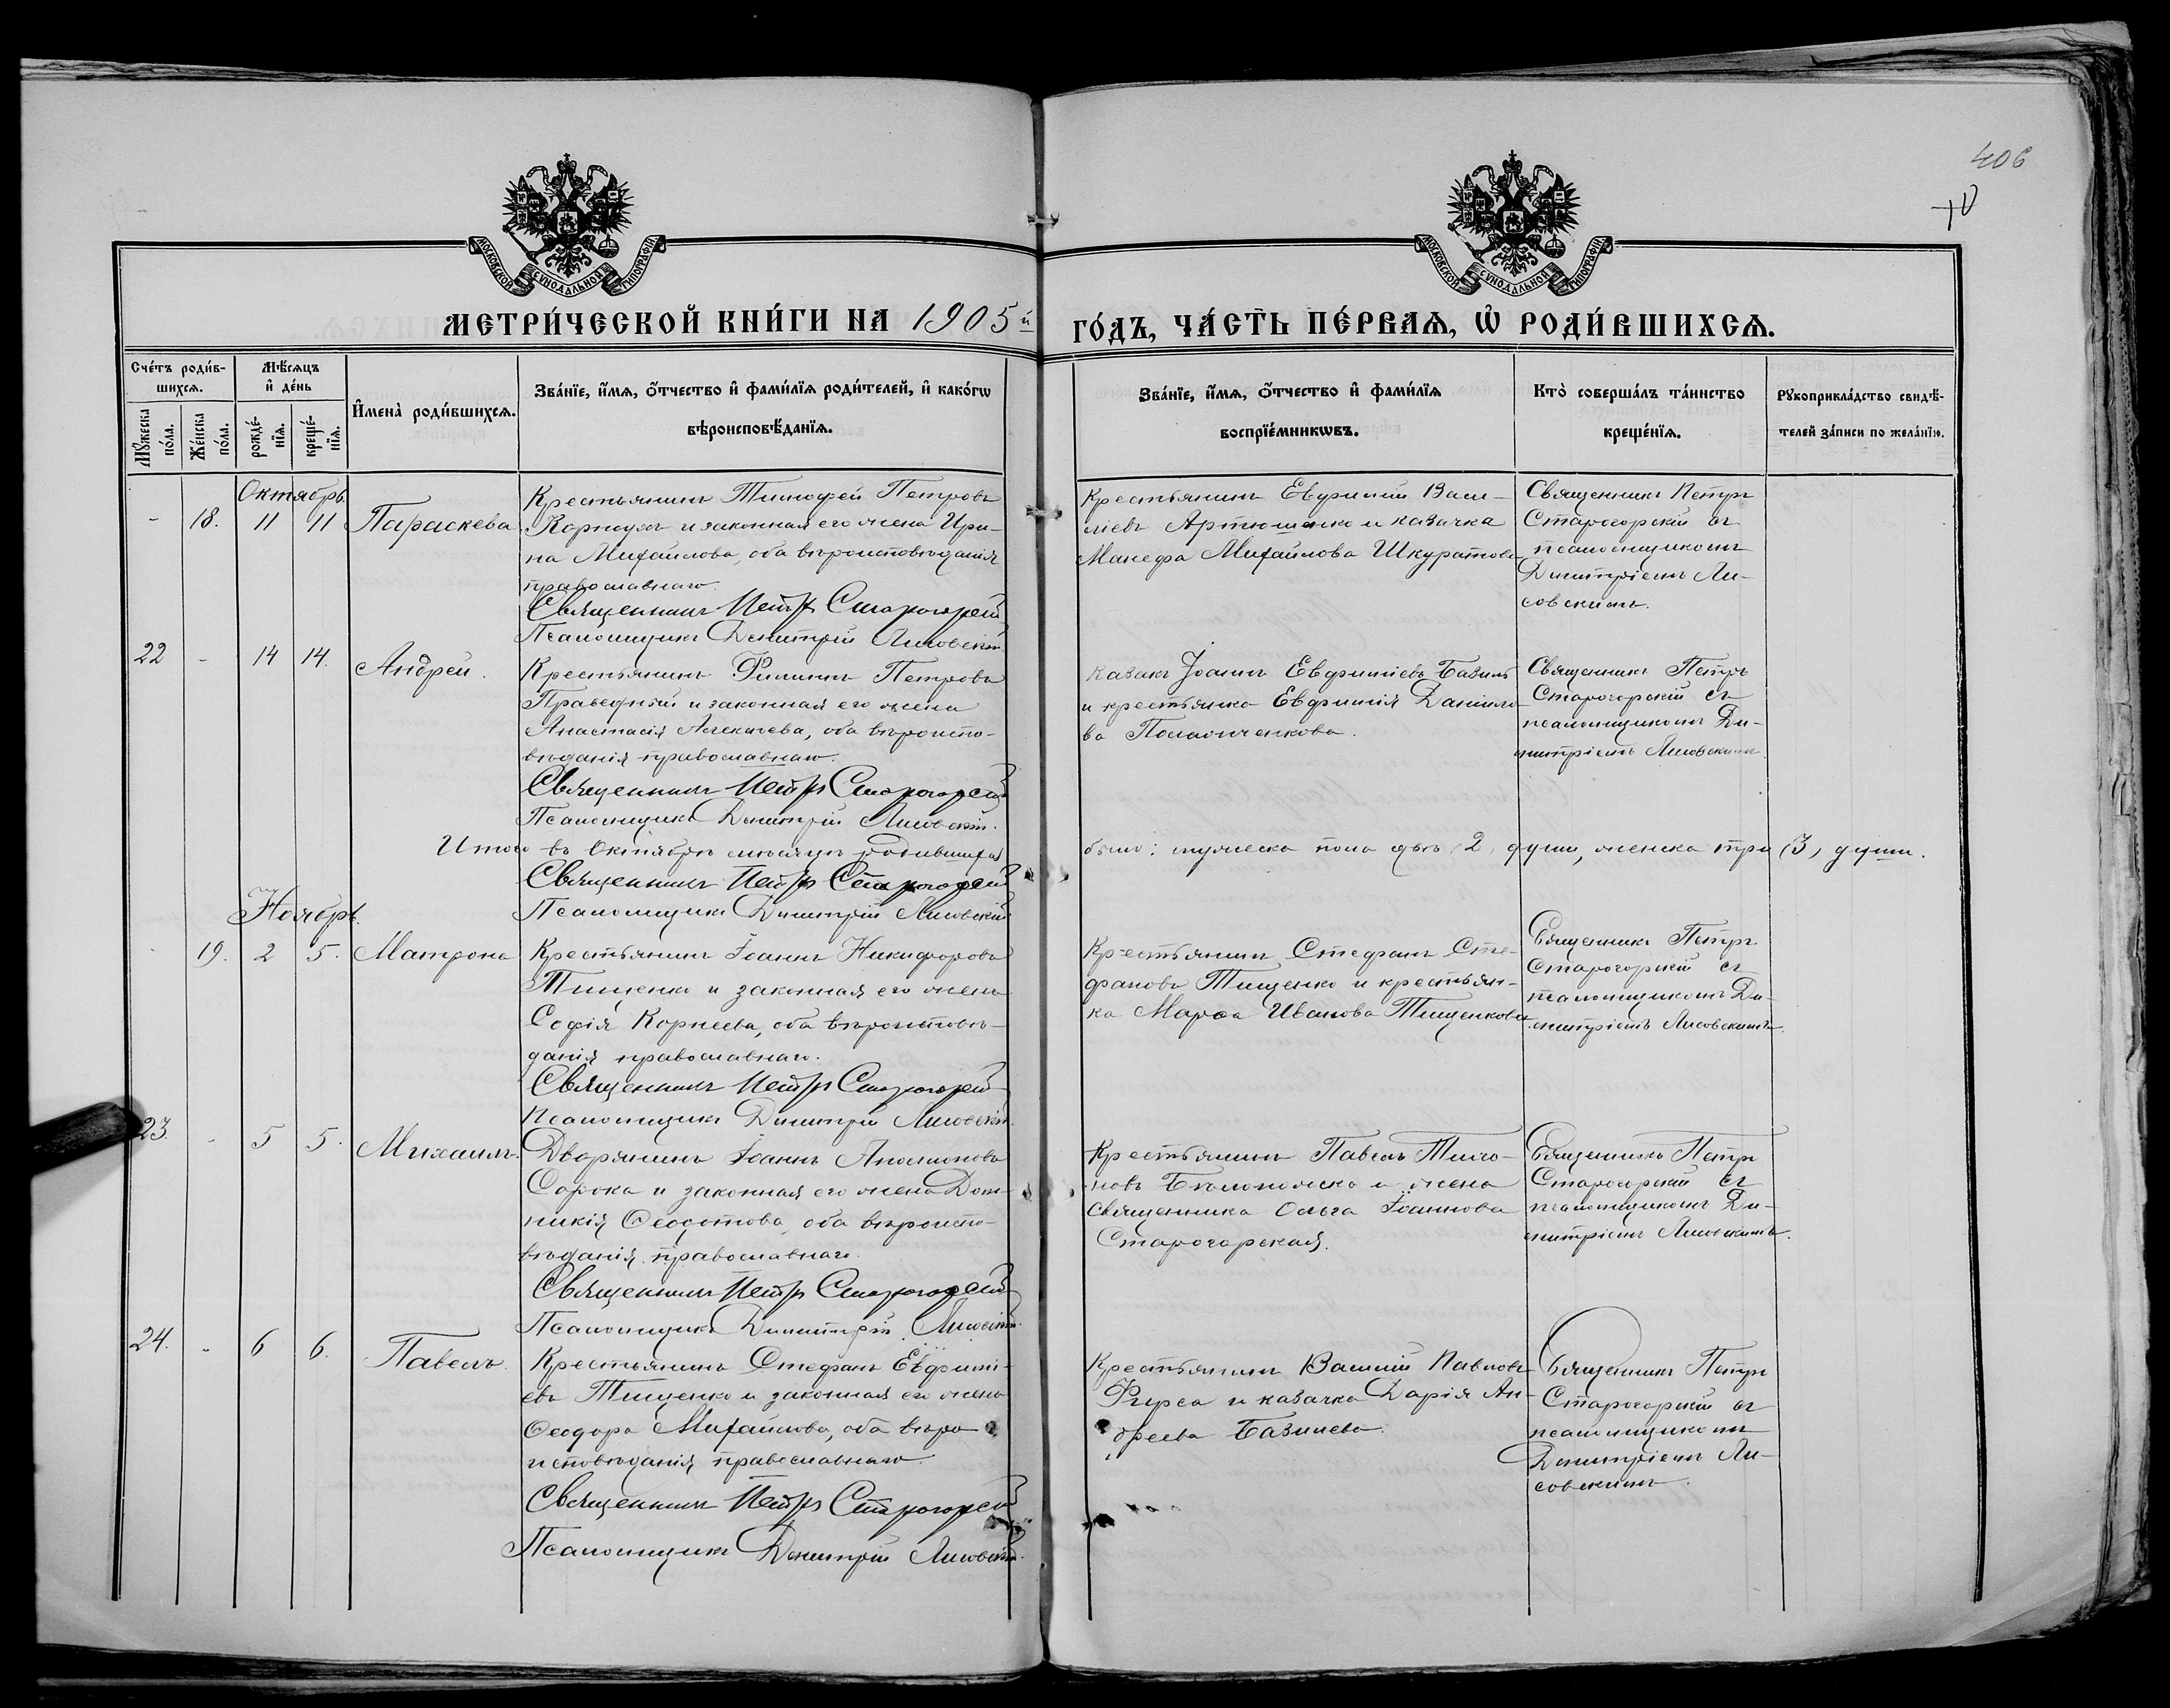 406
МОСКОВСКОЙ СУНОДАЛЬНОЙ ТИПОГРАФІИ
МОСКОВСКОЙ СУНОДАЛЬНОЙ ТИПОГРАФІИ
МЕТРИ́ЧЕСКОЙ КНИ́ГИ НА 1905й
ГО́ДЪ, ЧА́СТЬ ПЕ́РВАѦ, Ѽ РОДИ́ВШИХСѦ.
Сче́тъ роди́в-
шихсѧ.
Мꙋжеска по́ла.
Же́нска по́ла.
Мѣ́сѧцъ
и҆ де́нь
рожде́-
нїѧ.
креще́-
нїѧ.
И҆мена̀ роди́вшихсѧ.
Зва́нїе, и҆́мѧ, ѻ҆́тчество и҆ фами́лїѧ роди́телей, и҆ како́гѡ
вѣроисповѣ́данїѧ.
Зва́нїе, и҆́мѧ, ѻ҆́тчество и҆ фами́лїѧ
воспрїе́мникѡвъ.
Кто̀ соверша́лъ та́инство
креще́нїѧ.
Рꙋкоприкла́дство свидѣ́-
телей за́писи по жела́нїю.
Октябрь
- 18. 11 11 Параскева
Крестьянинъ Тимофей Петровъ
Корнаухъ и законная его жена Ири-
на Михайлова, оба вѣроисповѣданія
православнаго.
Священникъ Петръ Старогорскій
Псаломщикъ Димитрій Лисовскій
Крестьянинъ Евфимій Васи-
ліевъ Артюшенко и казачка
Макефа Михайлова Шкуратова
Священникъ Петръ
Старогорскій съ
псаломщикомъ
Димитріемъ Ли-
совскимъ.
22 - 14 14. Андрей.
Крестьянинъ Филиппъ Петровъ
Праведный и законная его жена
Анастасія Алексѣева, оба вѣроиспо-
вѣданія православнаго.
Священникъ Петръ Старогорскій
Псаломщикъ Димитрій Лисовскій.
казакъ Іоаннъ Евфиміевъ Базиль
и крестьянка Евфимія Данило-
ва
Священникъ Петръ
Старогорскій съ
псаломщикомъ Ди-
митріемъ Лисовскимъ.
Итого въ Октябрѣ мѣсяцѣ родившихся
было: мужеска пола двѣ (2) души, женска три (3) души.
Священникъ Петръ Старогорскій
Псаломщикъ Димитрій Лисовскій
Ноябрь.
- 19. 2 5. Матрона
Крестьянинъ Іоаннъ Никифоровъ
Тищенко и законная его жена
Софія Корнеева, оба вѣроисповѣ-
данія православнаго.
Священникъ Петръ Старогорскій
Псаломщикъ Димитрій Лисовскій.
Крестьянинъ Стефанъ Сте-
фановъ Тищенко и крестьян-
ка Марѳа Иванова Тищенкова
Священникъ Петръ
Старогорскій съ
псаломщикомъ Ди-
митріемъ Лисовскимъ.
23. - 5 5. Михаилъ.
Дворянинъ Іоаннъ
Сорока и законная его жена Дом-
никія Ѳеодотова, оба вѣроиспо-
вѣданія православнаго.
Священникъ Петръ Старогорскій
Псаломщикъ Димитрій Лисовскій.
Крестьянинъ Павелъ
новъ и жена
священника Ольга Іоаннова
Старогорская.
Священникъ Петръ
Старогорскій съ
псаломщикомъ Ди-
митріемъ Лисовскимъ.
24. - 6 6. Павелъ.
Крестьянинъ Стефанъ Евфимі-
евъ Тищенко и законная его жена
Ѳеодора Михайлова, оба вѣро-
исповѣданія православнаго.
Священникъ Петръ Старогорскій
Псаломщикъ Димитрій Лисовскій.
Крестьянинъ Василій Павловъ
Фирса и казачка Дарія Ан-
дреева Базилева.
Священникъ Петръ
Старогорскій съ
псаломщикомъ
Димитріемъ Ли-
совскимъ.